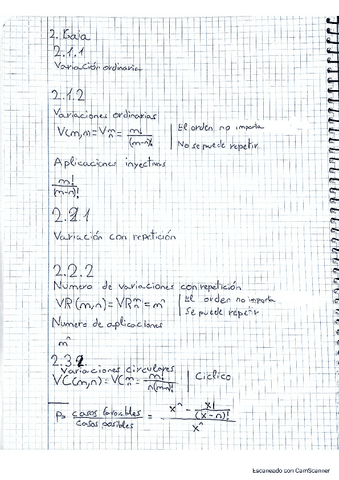 2. Gaia
2.1.1
Variación ordinaria
2.1.2
Variaciones ordinarias
V(m,n) = Vₘⁿ = m!/(m-n)! | El orden no importa
No se puede repetir
Aplicaciones inyectivas
m!/(m-n)!
2.2.1
Variación con repetición
2.2.2
Número de variaciones con repetición
VR(m,n) = VRₘⁿ = mⁿ | El orden no importa
Se puede repetir
Número de aplicaciones
mⁿ
2.3.2
Variaciones circulares
VC(m,n) = VCₘⁿ = m!/n(m-n)! | Cíclico
P= casos favorables/casos posibles = (xⁿ - x!/(x-n)!)/xⁿ
Escaneado con CamScanner